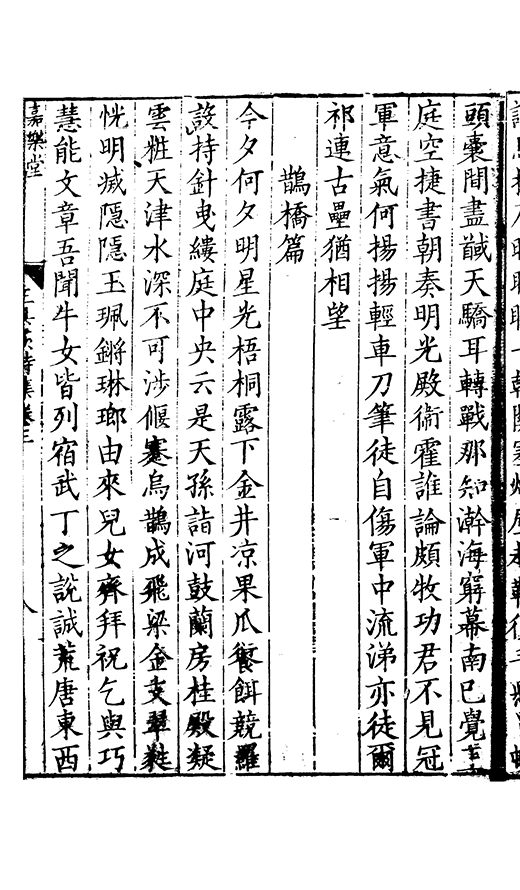 頭橐間盡馘天驕耳轉戰那知瀚海窮幕南已覺
庭空捷書朝奏明光殿衞霍誰論頗牧功君不見冠
軍意氣何揚揚輕車刀筆徒自傷軍中流涕亦徒爾
祁連古壘猶相望
鵲橋篇
今夕何夕明星光梧桐露下金井凉果瓜餐餌競羅
設持針曳縷庭中央云是天孫詣河鼓蘭房桂殿疑
雲粧天津水深不可涉偃蹇烏鵲成飛梁金支翠蕤
恍明滅隱隱玉珮鏘琳瑯由來兒女齊拜祝乞與巧
慧能文章吾聞牛女皆列宿武丁之說誠荒唐東西
嘉樂堂
詩集卷三